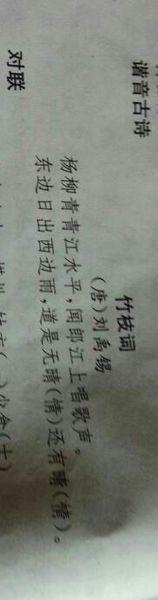 谐音古诗
竹枝词
(唐)刘禹锡
杨柳青青江水平,闻郎江上唱歌声。
东边日出西边雨,道是无晴(情)还有晴(情)。
对联